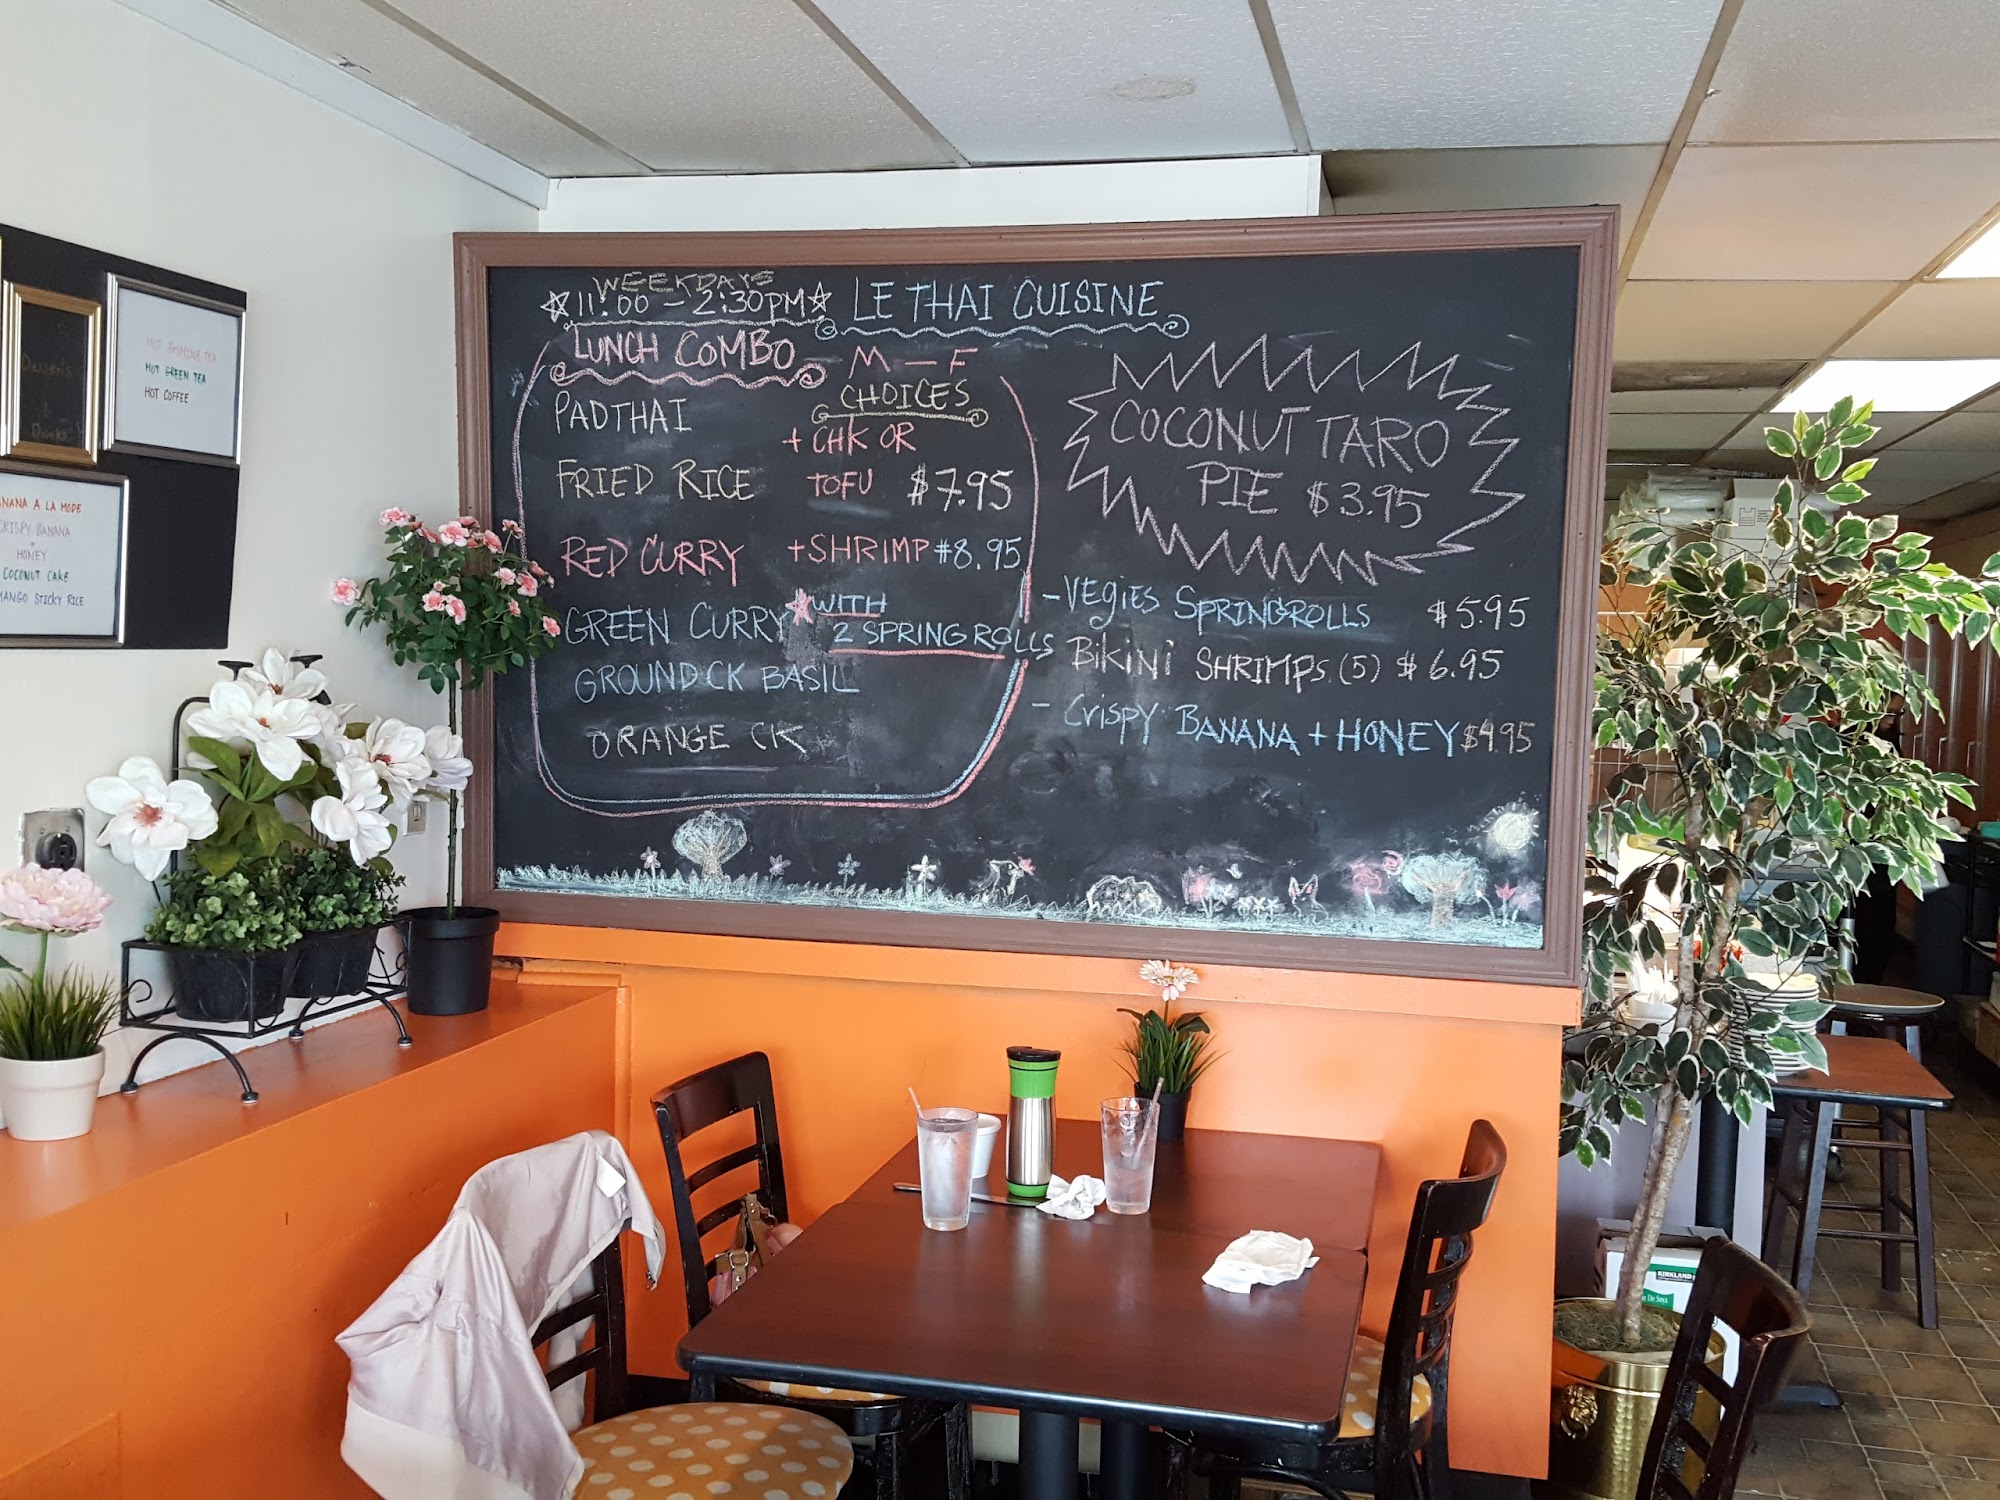 WEEKDAYS
11:00 - 2:30PM
LE THAI CUISINE
LUNCH COMBO
M - F
CHOICES
PADTHAI
+ CHK OR
TOFU $7.95
FRIED RICE
RED CURRY
+ SHRIMP #8.95
GREEN CURRY
WITH
2 SPRING ROLLS
GROUND CK BASIL
ORANGE CK
COCONUT TARO
PIE $3.95
- VEGIES SPRINGROLLS $5.95
BIKINI SHRIMPS (5) $6.95
- CRISPY BANANA + HONEY $4.95
HOT JASMINE TEA
HOT GREEN TEA
HOT COFFEE
Desserts
&
Drinks
A LA MODE
CRISPY BANANA
+
HONEY
COCONUT CAKE
MANGO STICKY RICE
KIRKLAND